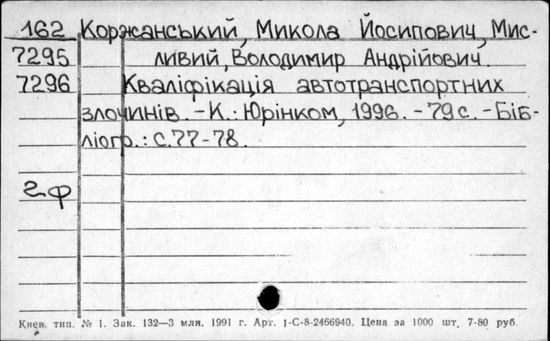 162 Коржанський, Микола Йосипович, Мис-
7295 ливий, Володимир Андрійович.
7296 Кваліфікація автотранспортних
злочинів. -К.: Юрінком, 1996. - 79 с. - Біб-
ліогр.: с.77-78.
2ф
Киев. тип. № 1. Зак. 132—3 млн. 1991 г. Арт. 1-С-8-2466940. Цена за 1000 шт. 7-80 руб.